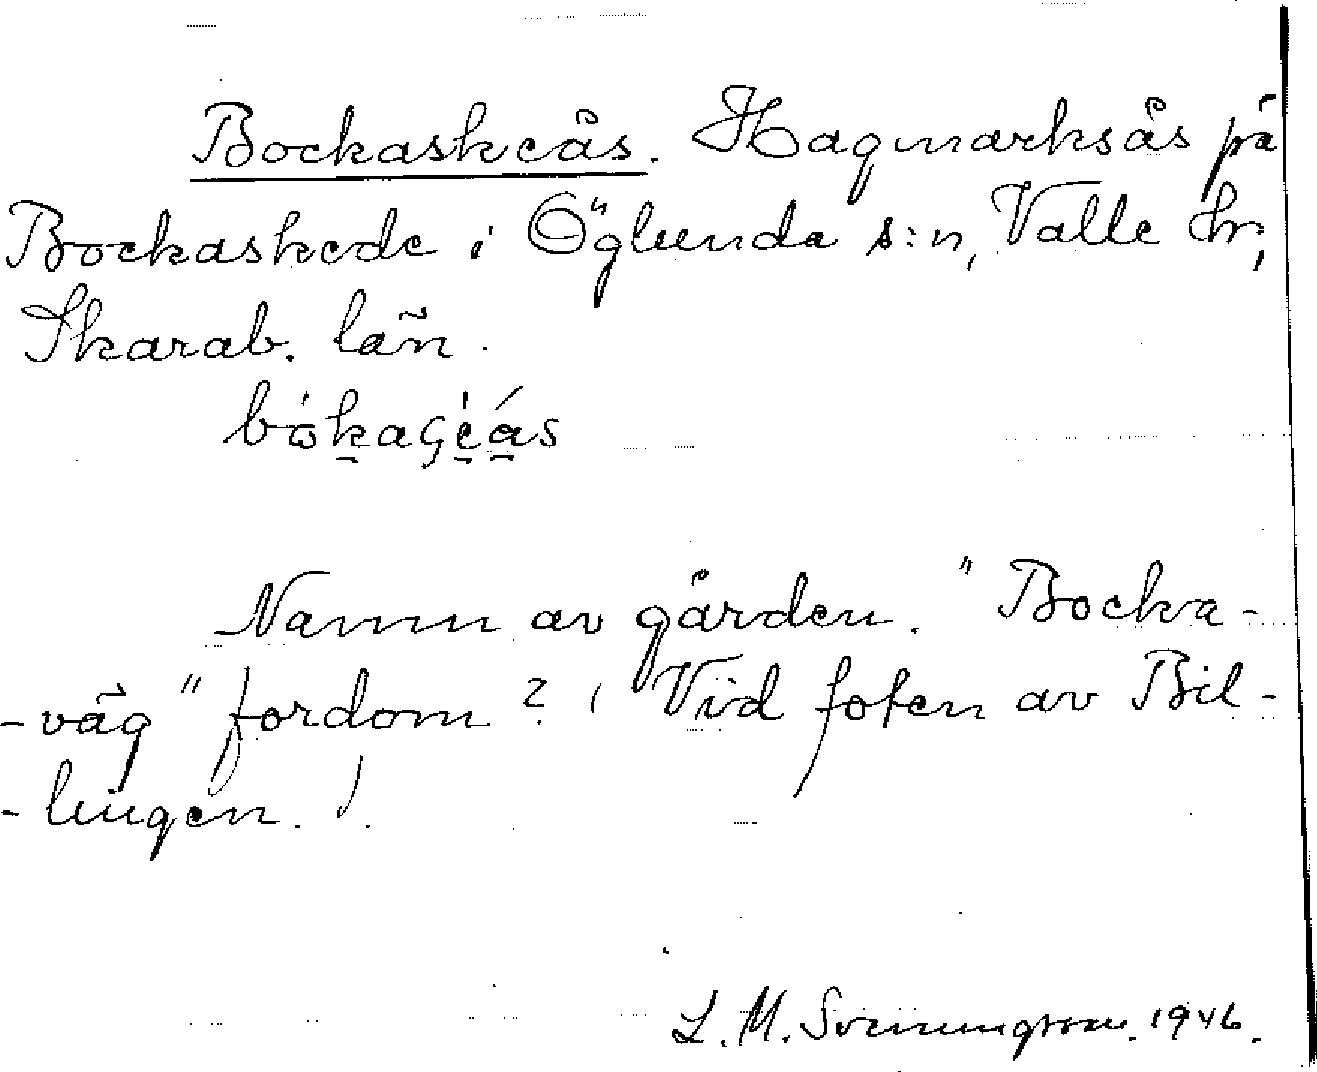 Bockaskeås. Hagmarksås på
Bockaskede i Öglunda s:n, Valle hr,
Skarab. län.
Namn av gården. "Bocka-
-väg" fordom? (Vid foten av Bil-
-lingen.).
L. M. Svenungsson. 1946.